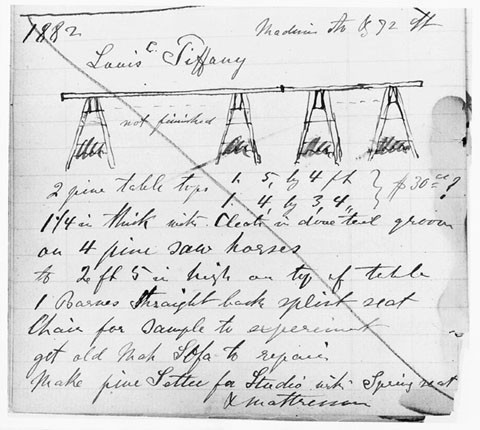 1882
Louis C. Tiffany
not finished
2 pine table tops 1. 5, by 4 ft } $30
1. 4, by 3, 4,,
1 1/4 in thick with Cleats in dove tail groove
on 4 pine saw horses
to 2 ft 5 in high on top of table
1 Barnes Straight back splint seat
Chair for sample to experiment
get old Mah Sofa to repair
Make pine Settee for Studio with Spring seat
& mattresson